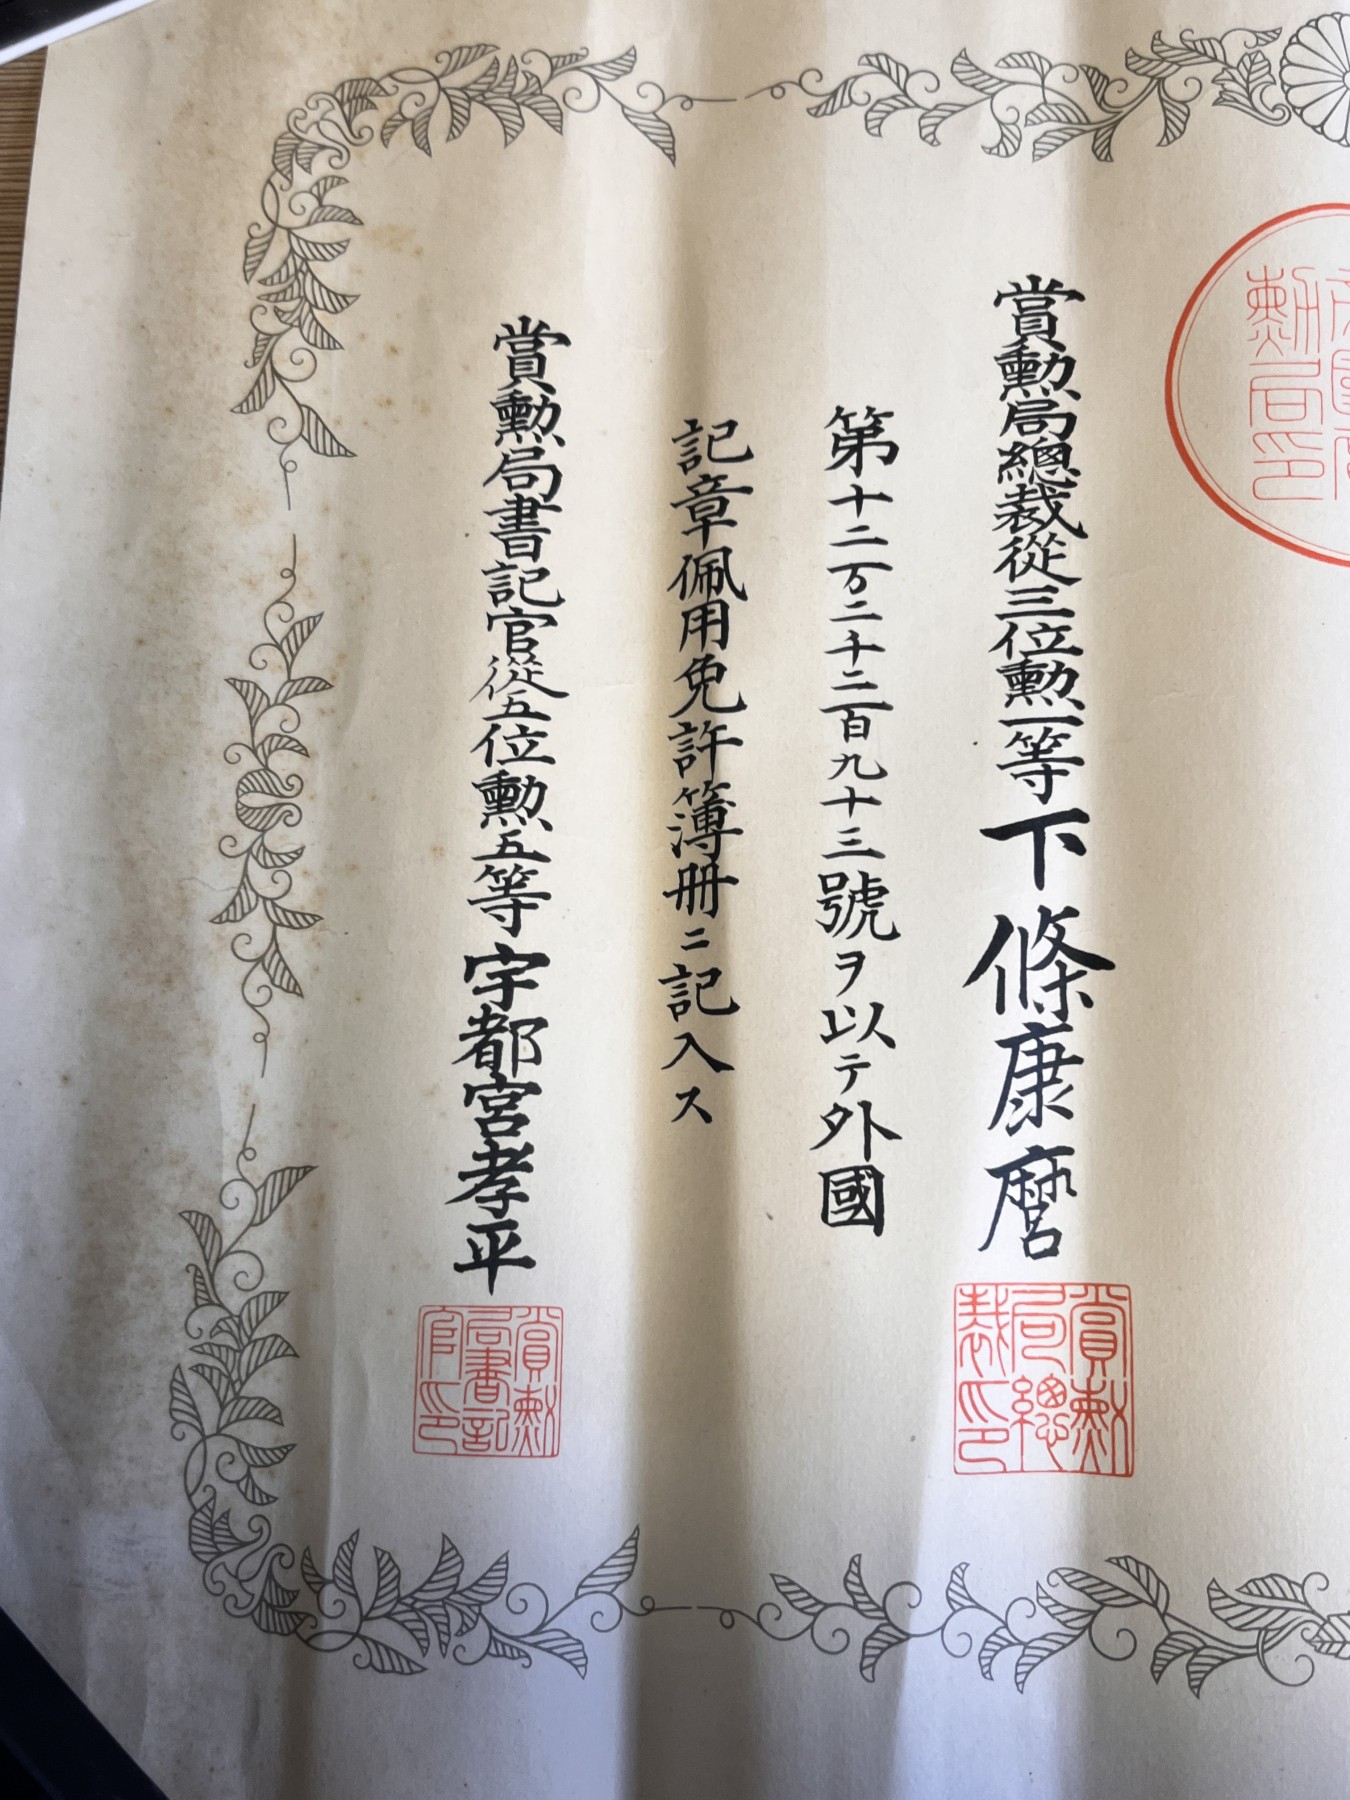 賞勲局總裁從三位勲一等下條康麿
第十二万二千二百九十三號ヲ以テ外國
記章佩用免許簿册ニ記入ス
賞勲局書記官從五位勲五等宇都宮孝平
勲局印
賞勲局總裁印
賞勲局書記官印